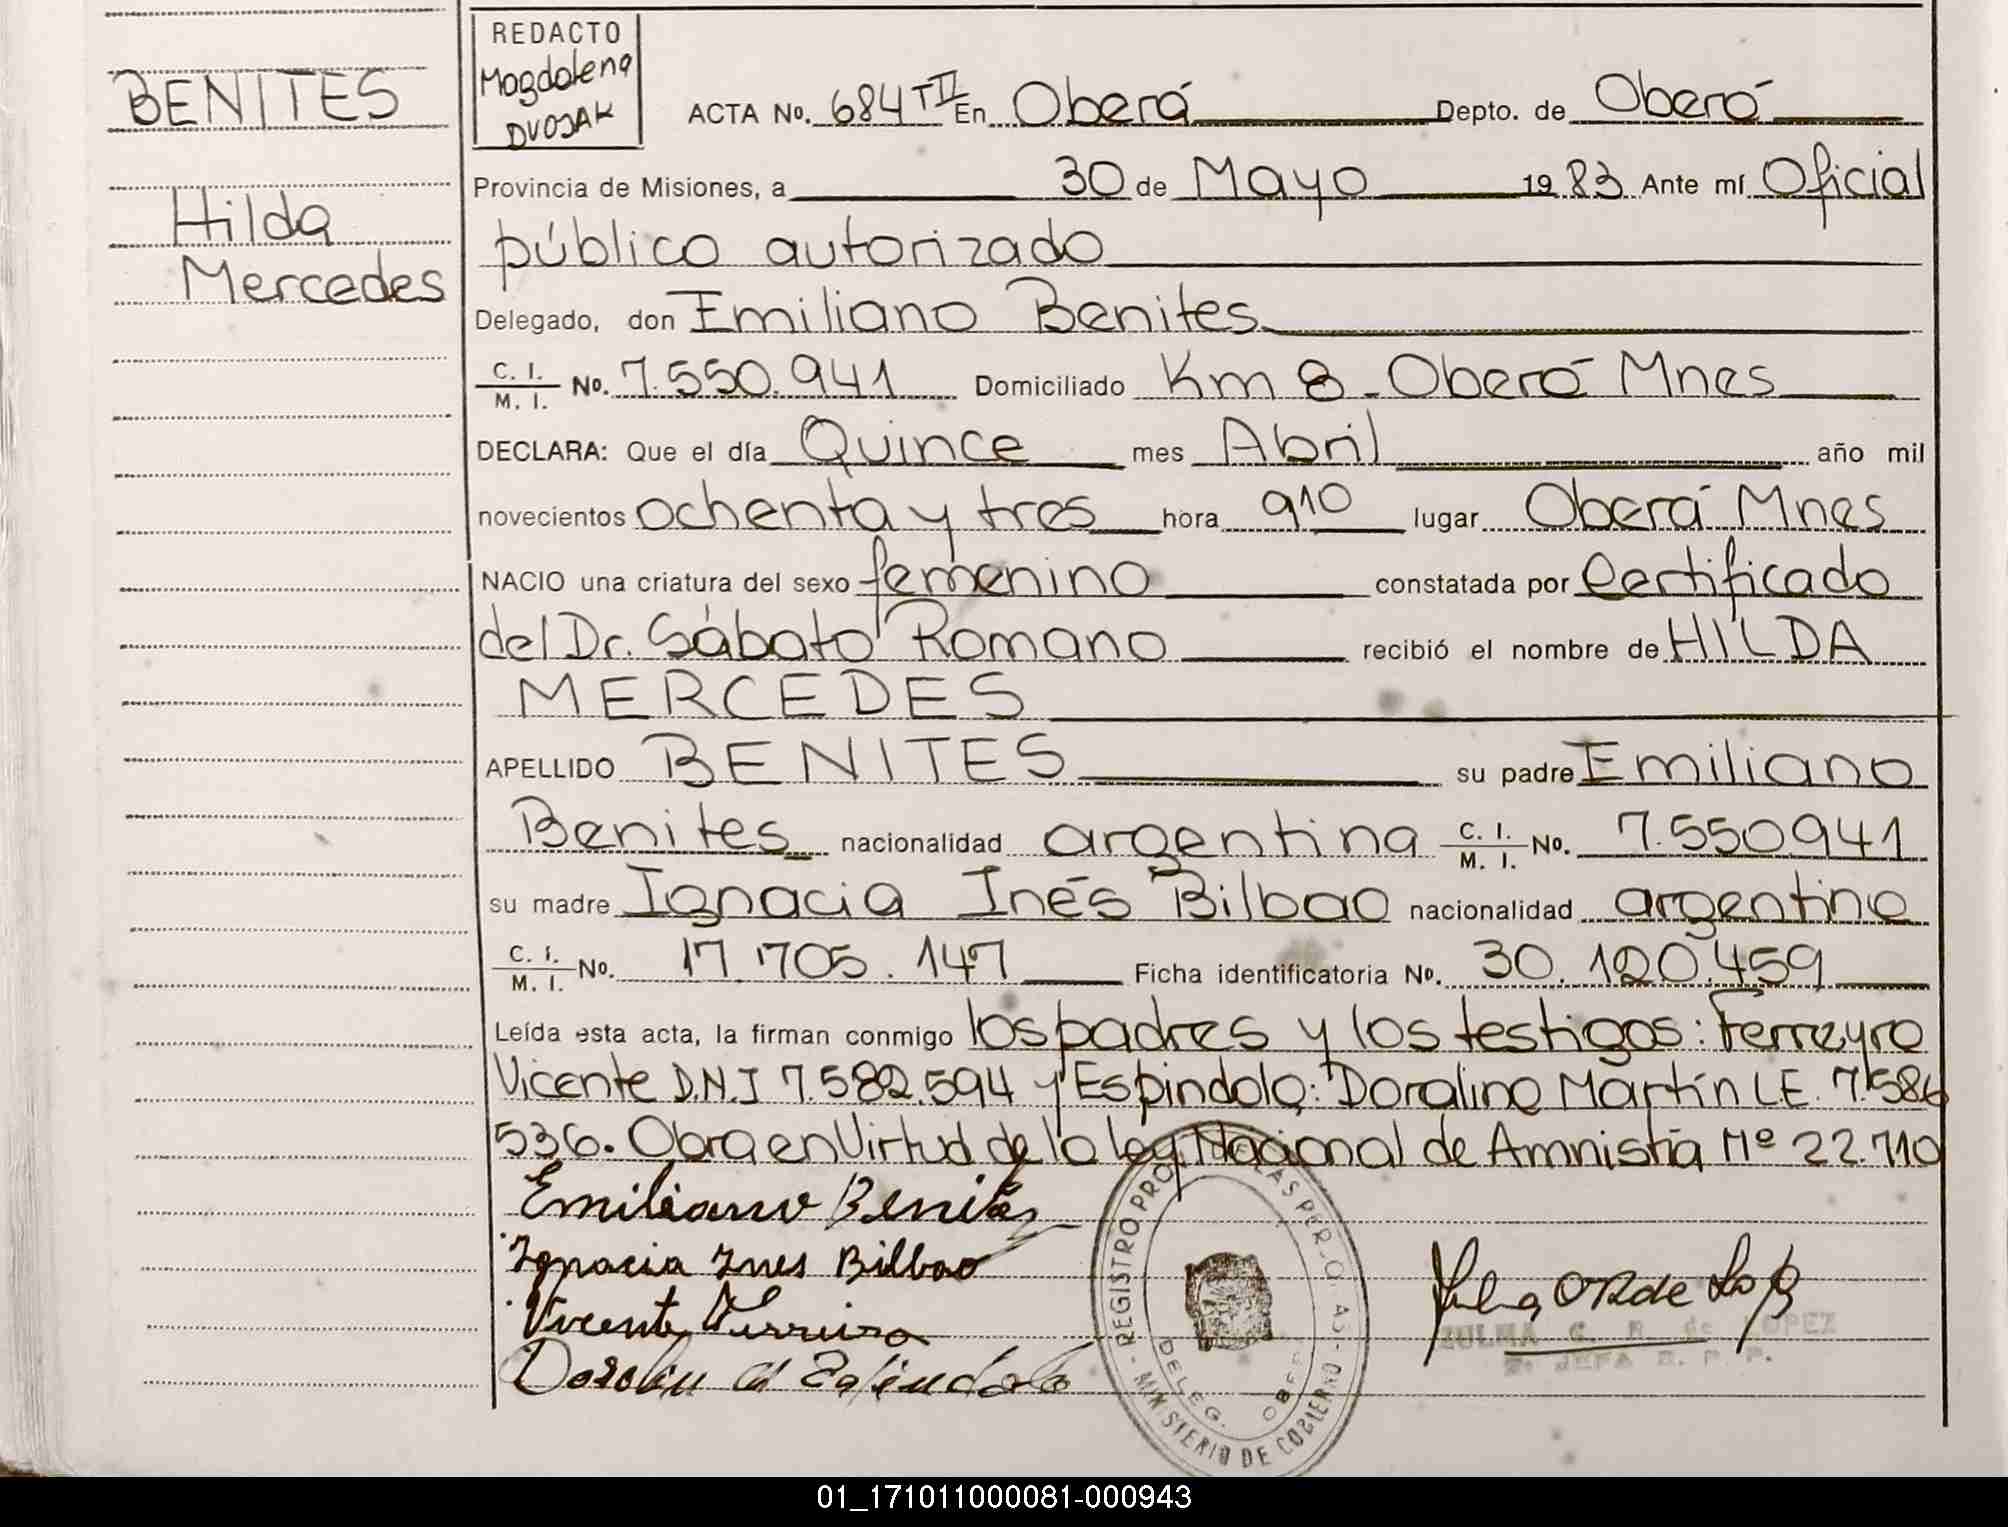 BENITES
Hilda
Mercedes
REDACTO
Magdalena
DVOJAK
ACTA No. 684 T II En Oberá Depto. de Oberá
Provincia de Misiones, a 30 de Mayo 1983 Ante mí Oficial
público autorizado
Delegado, don Emiliano Benites
C. I. / M. I. No. 7.550.941 Domiciliado Km 8 - Oberá Mnes
DECLARA: Que el día Quince mes Abril año mil
novecientos ochenta y tres hora 910 lugar Oberá Mnes
NACIO una criatura del sexo femenino constatada por Certificado
del Dr. Sábato Romano recibió el nombre de HILDA
MERCEDES
APELLIDO BENITES su padre Emiliano
Benites nacionalidad argentina C. I. / M. I. No. 7.550.941
su madre Ignacia Inés Bilbao nacionalidad argentina
C. I. / M. I. No. 17.705.147 Ficha identificatoria No. 30.120.459
Leída esta acta, la firman conmigo los padres y los testigos: Ferreyra
Vicente D.N.I 7.582.594 y Espindola: Doralino Martín L.E. 7.586
536. Obra en Virtud de la ley Nacional de Amnistía Nº 22.710
Emiliano Benites
Ignacia Ines Bilbao
Vicente Ferreira
Espindola
REGISTRO PRO LAS PERSONAS
DELEG. OBE
MINISTERIO DE GOBIERNO
ZULMA C. R. de LOPEZ
JEFA R. P. P.
01_171011000081-000943